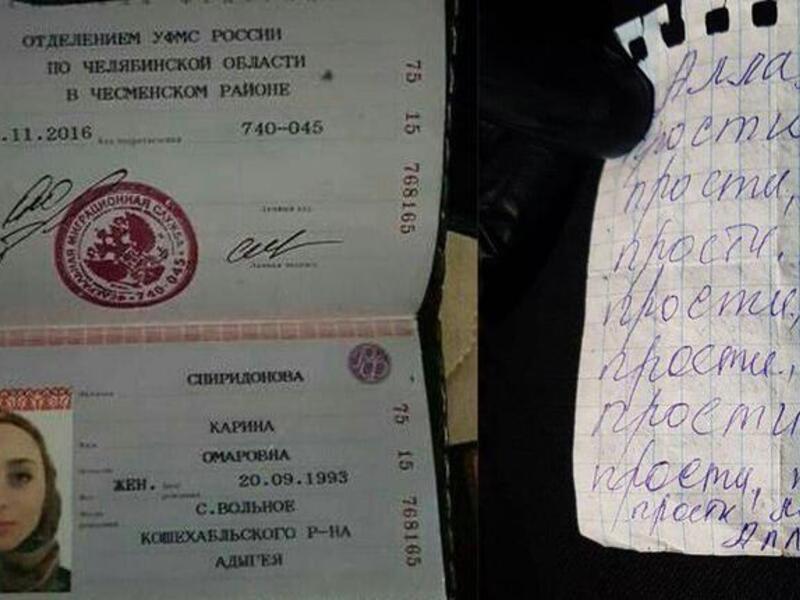 ОТДЕЛЕНИЕМ УФМС РОССИИ
ПО ЧЕЛЯБИНСКОЙ ОБЛАСТИ
В ЧЕСМЕНСКОМ РАЙОНЕ
.11.2016 740-045
75 15 768165
ФЕДЕРАЛЬНАЯ МИГРАЦИОННАЯ СЛУЖБА 740-045
Личный код
Личная подпись
СПИРИДОНОВА
КАРИНА
ОМАРОВНА
ЖЕН. 20.09.1993
С.ВОЛЬНОЕ
КОШЕХАБЛЬСКОГО Р-НА
АДЫГЕЯ
75 15 768165
Алла,
прости
прости,
прости,
прости,
прости,
прости
прости,
прости,